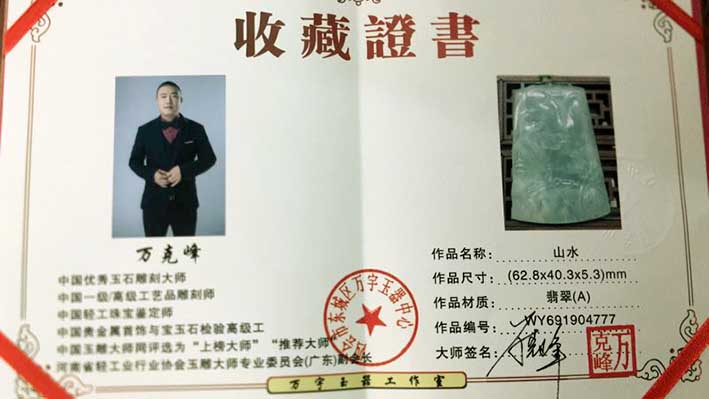 收藏證書
万克峰
中国优秀玉石雕刻大师
中国一级/高级工艺品雕刻师
中国轻工珠宝鉴定师
中国贵金属首饰与宝玉石检验高级工
中国玉雕大师网评选为“上榜大师” “推荐大师”
河南省轻工业行业协会玉雕大师专业委员会(广东)副会长
作品名称: 山水
作品尺寸: (62.8x40.3x5.3)mm
作品材质: 翡翠(A)
作品编号: WY691904777
大师签名:
万克峰
会市东城区万字玉器中心
万字玉器工作室